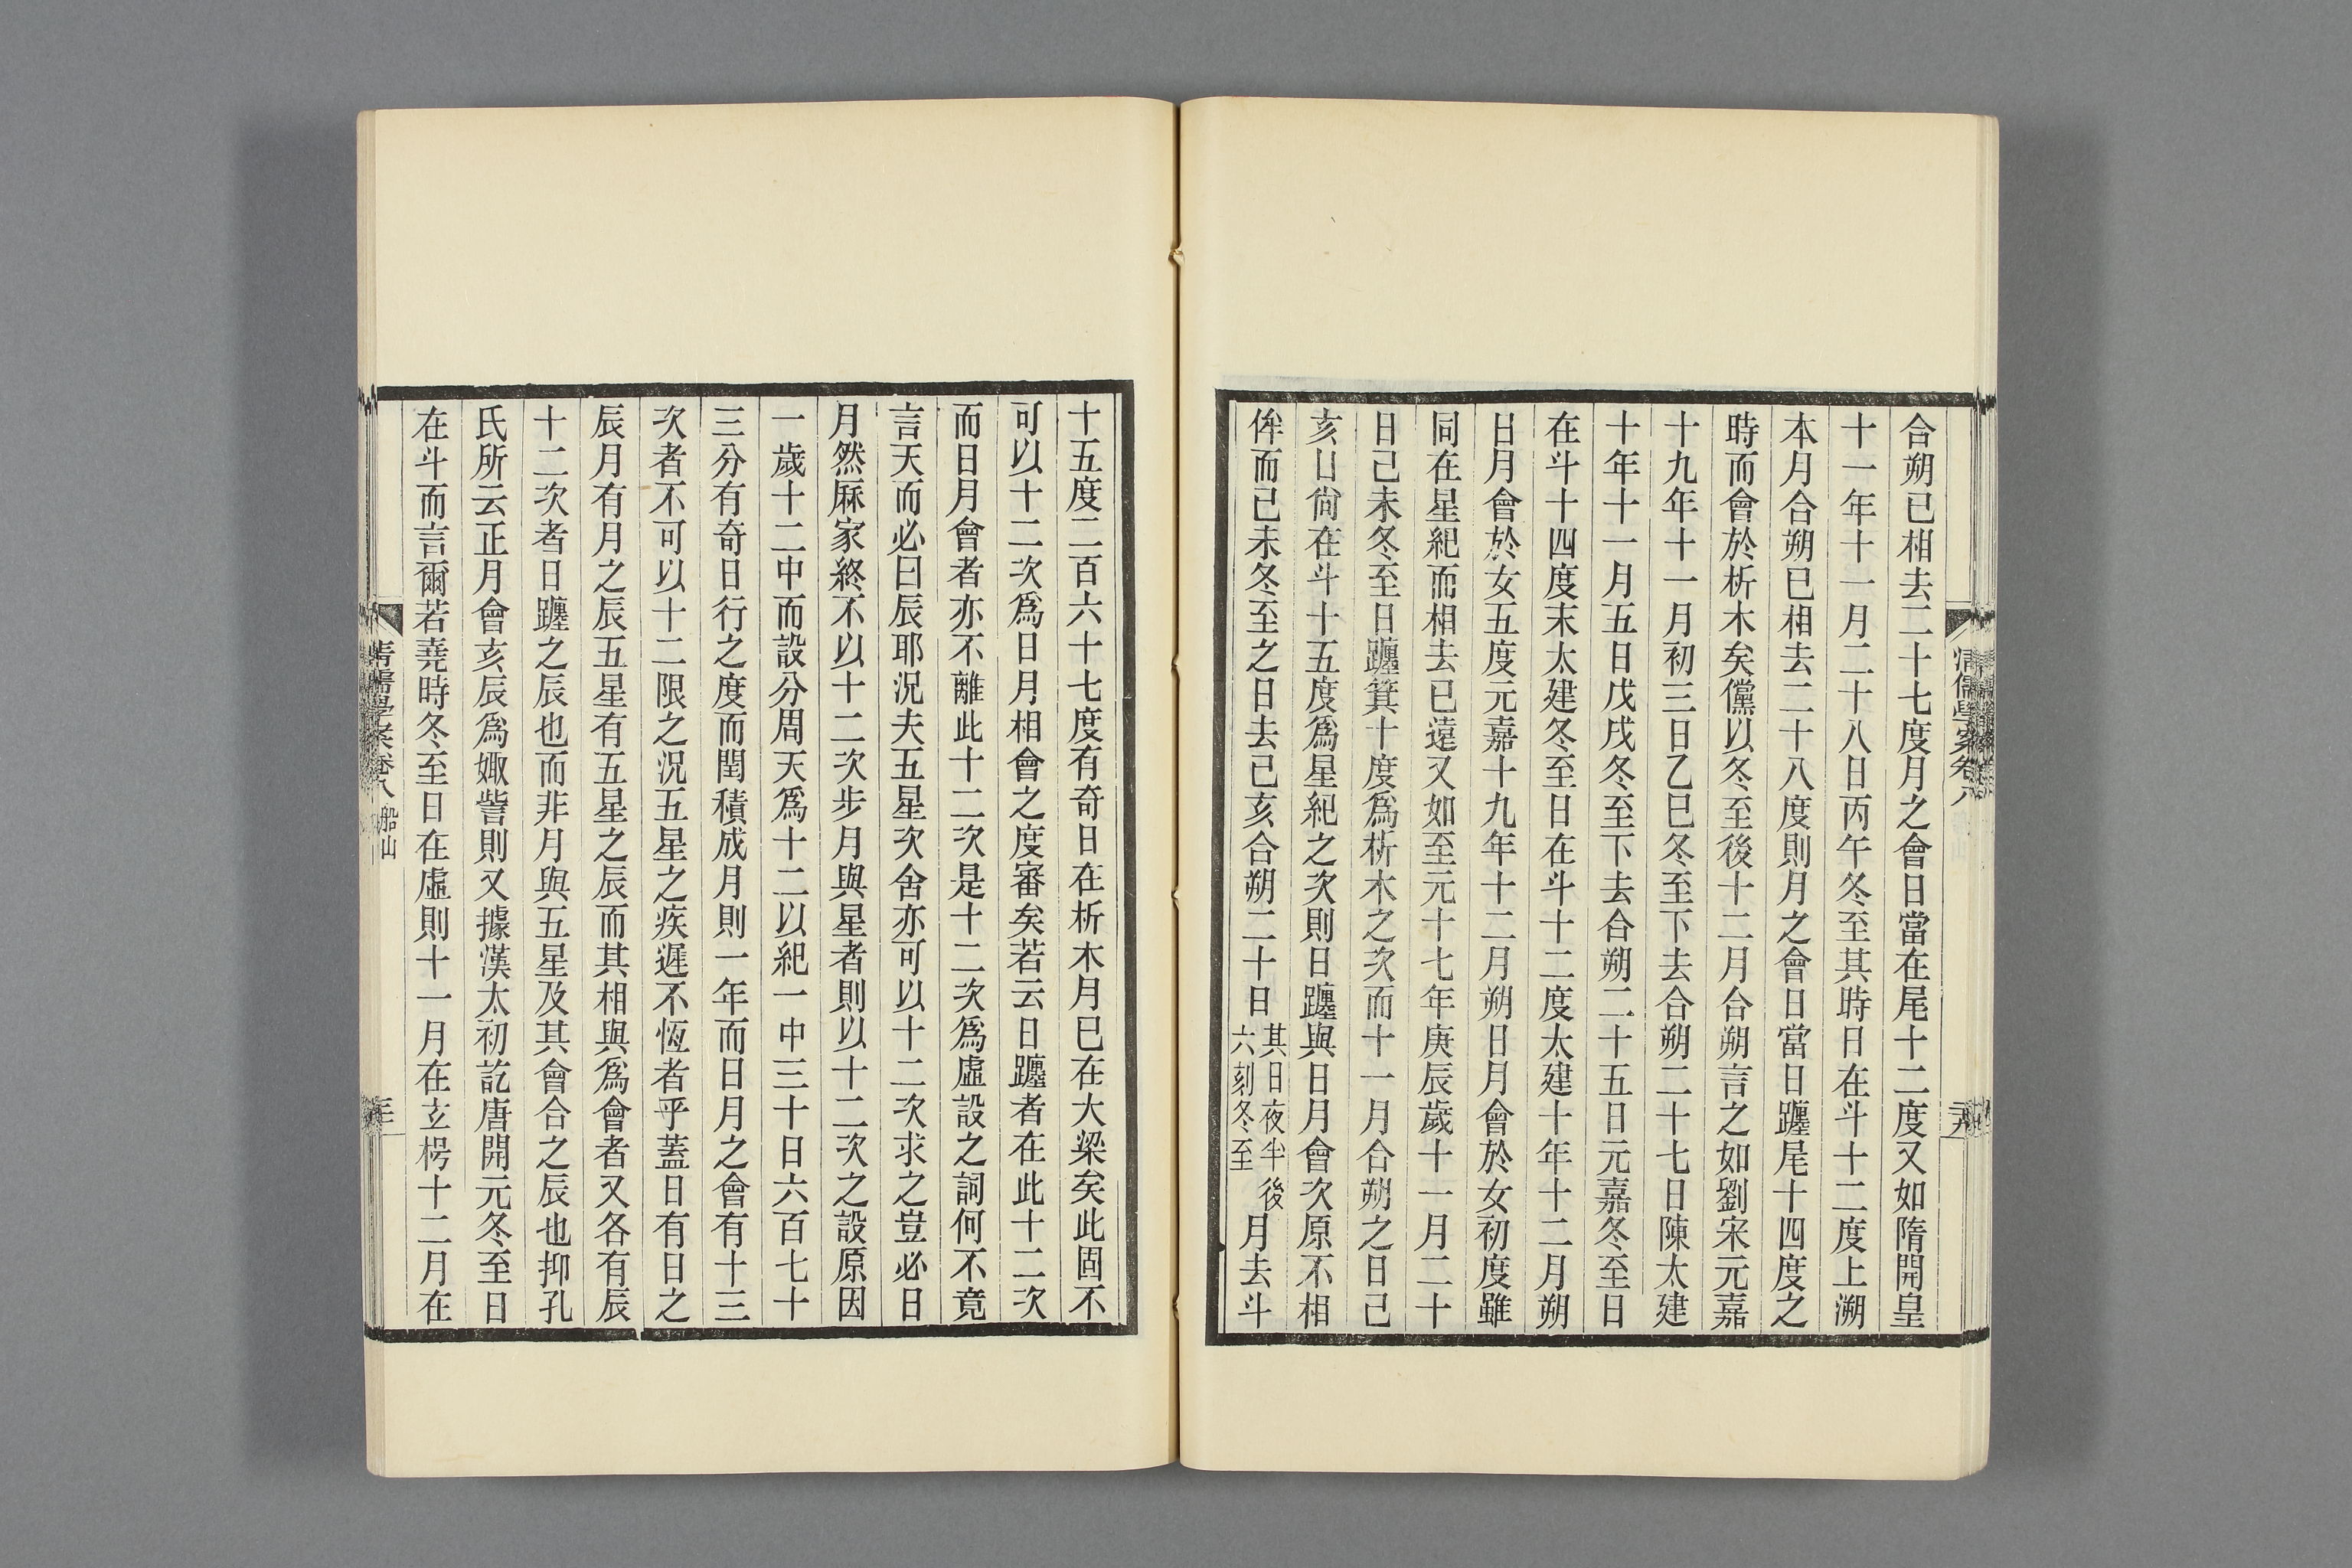 合朔已相去二十七度月之會日當在尾十二度又如隋開皇
十一年十一月二十八日丙午冬至其時日在斗十二度上溯
本月合朔已相去二十八度則月之會日當日躔尾十四度之
時而會於析木矣儻以冬至後十二月合朔言之如劉宋元嘉
十九年十一月初三日乙巳冬至下去合朔二十七日陳太建
十年十一月五日戊戌冬至下去合朔二十五日元嘉冬至日
在斗十四度末太建冬至日在斗十二度太建十年十二月朔
日月會於女五度元嘉十九年十二月朔日月會於女初度雖
同在星紀而相去已遠又如至元十七年庚辰歲十一月二十
日己未冬至日躔箕十度爲析木之次而十一月合朔之日己
亥日尙在斗十五度爲星紀之次則日躔與日月會次原不相
侔而己未冬至之日去己亥合朔二十日其日夜半後六刻冬至月去斗
十五度二百六十七度有奇日在析木月巳在大梁矣此固不
可以十二次爲日月相會之度審矣若云日躔者在此十二次
而日月會者亦不離此十二次是十二次爲虛設之詞何不竟
言天而必曰辰耶況夫五星次舍亦可以十二次求之豈必日
月然厤家終不以十二次步月與星者則以十二次之設原因
一歲十二中而設分周天爲十二以紀一中三十日六百七十
三分有奇日行之度而閏積成月則一年而日月之會有十三
次者不可以十二限之況五星之疾遲不恆者乎蓋日有日之
辰月有月之辰五星有五星之辰而其相與爲會者又各有辰
十二次者日躔之辰也而非月與五星及其會合之辰也抑孔
氏所云正月會亥辰爲娵訾則又據漢太初訖唐開元冬至日
在斗而言爾若堯時冬至日在虛則十一月在玄枵十二月在
清儒學案卷八 船山